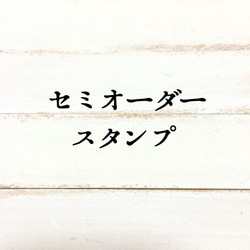 セミオーダー
スタンプ